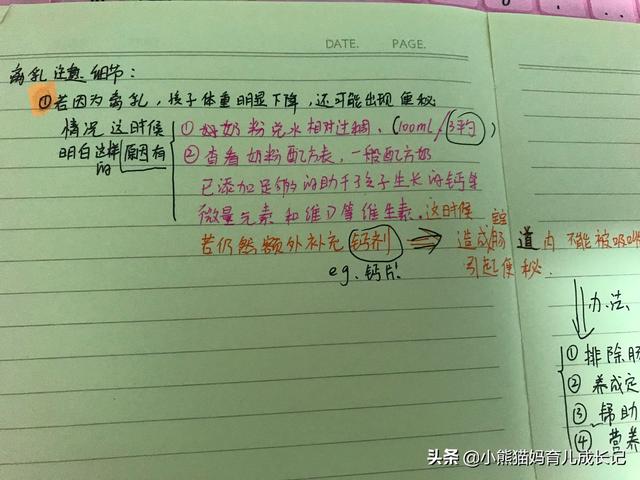 DATE. PAGE.
离乳注意细节：
①若因为离乳，孩子体重明显下降，还可能出现便秘
情况 这时候
明白这样的
原因有
①奶粉兑水相对过稠。(100ml/3平勺)
②查看奶粉配方表，一般配方奶
已添加足够的助于孩子生长的钙等
微量元素和维D等维生素。这时候
若仍然额外补充钙剂 ⇒ 造成肠道内不能被吸收
引起便秘.
eg. 钙片！
办法、
①排除肠
②养成定
③帮助
④营养
头条 @小熊猫妈育儿成长记